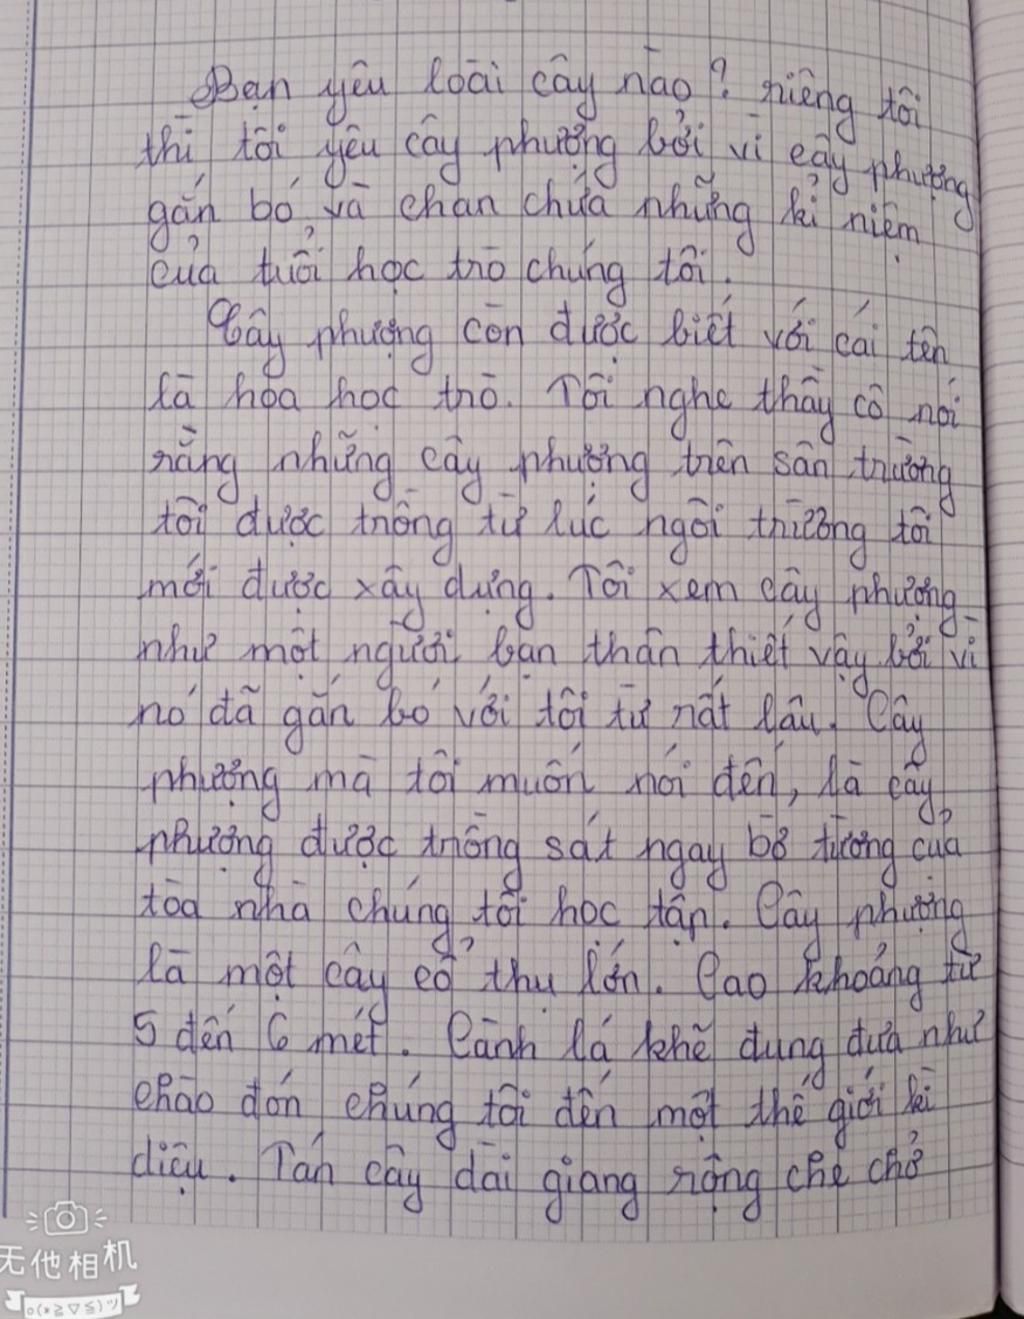 Bạn yêu loài cây nào? riêng tôi
thì tôi yêu cây phượng bởi vì cây phượng
gắn bó và chan chứa những kỉ niệm
của tuổi học trò chúng tôi.
Cây phượng còn được biết với cái tên
là hoa học trò. Tôi nghe thầy cô nói
rằng những cây phượng trên sân trường
tôi được trồng từ lúc ngôi trường tôi
mới được xây dựng. Tôi xem cây phượng
như một người bạn thân thiết vậy bởi vì
nó đã gắn bó với tôi từ rất lâu. Cây
phượng mà tôi muốn nói đến, là cây
phượng được trồng sát ngay bờ tường của
tòa nhà chúng tôi học tập. Cây phượng
là một cây cổ thụ lớn. Cao khoảng từ
5 đến 6 mét. Cành lá khẽ dung đưa như
chào đón chúng tôi đến một thế giới kì
diệu. Tán cây dài giang rộng che chở
无他相机
o(*≧▽≦)ツ